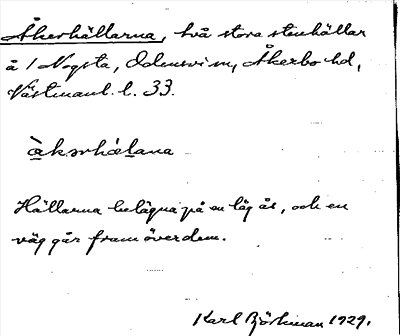 Åkerhällarna, två stora stenhällar
å 1 Nogsta, Odensvi sn, Åkerbo hd,
Västmanl. l. 33.
àkərhέlana
Hällarna belägna på en låg ås, och en
väg går fram över dem.
Karl Björkman 1929.